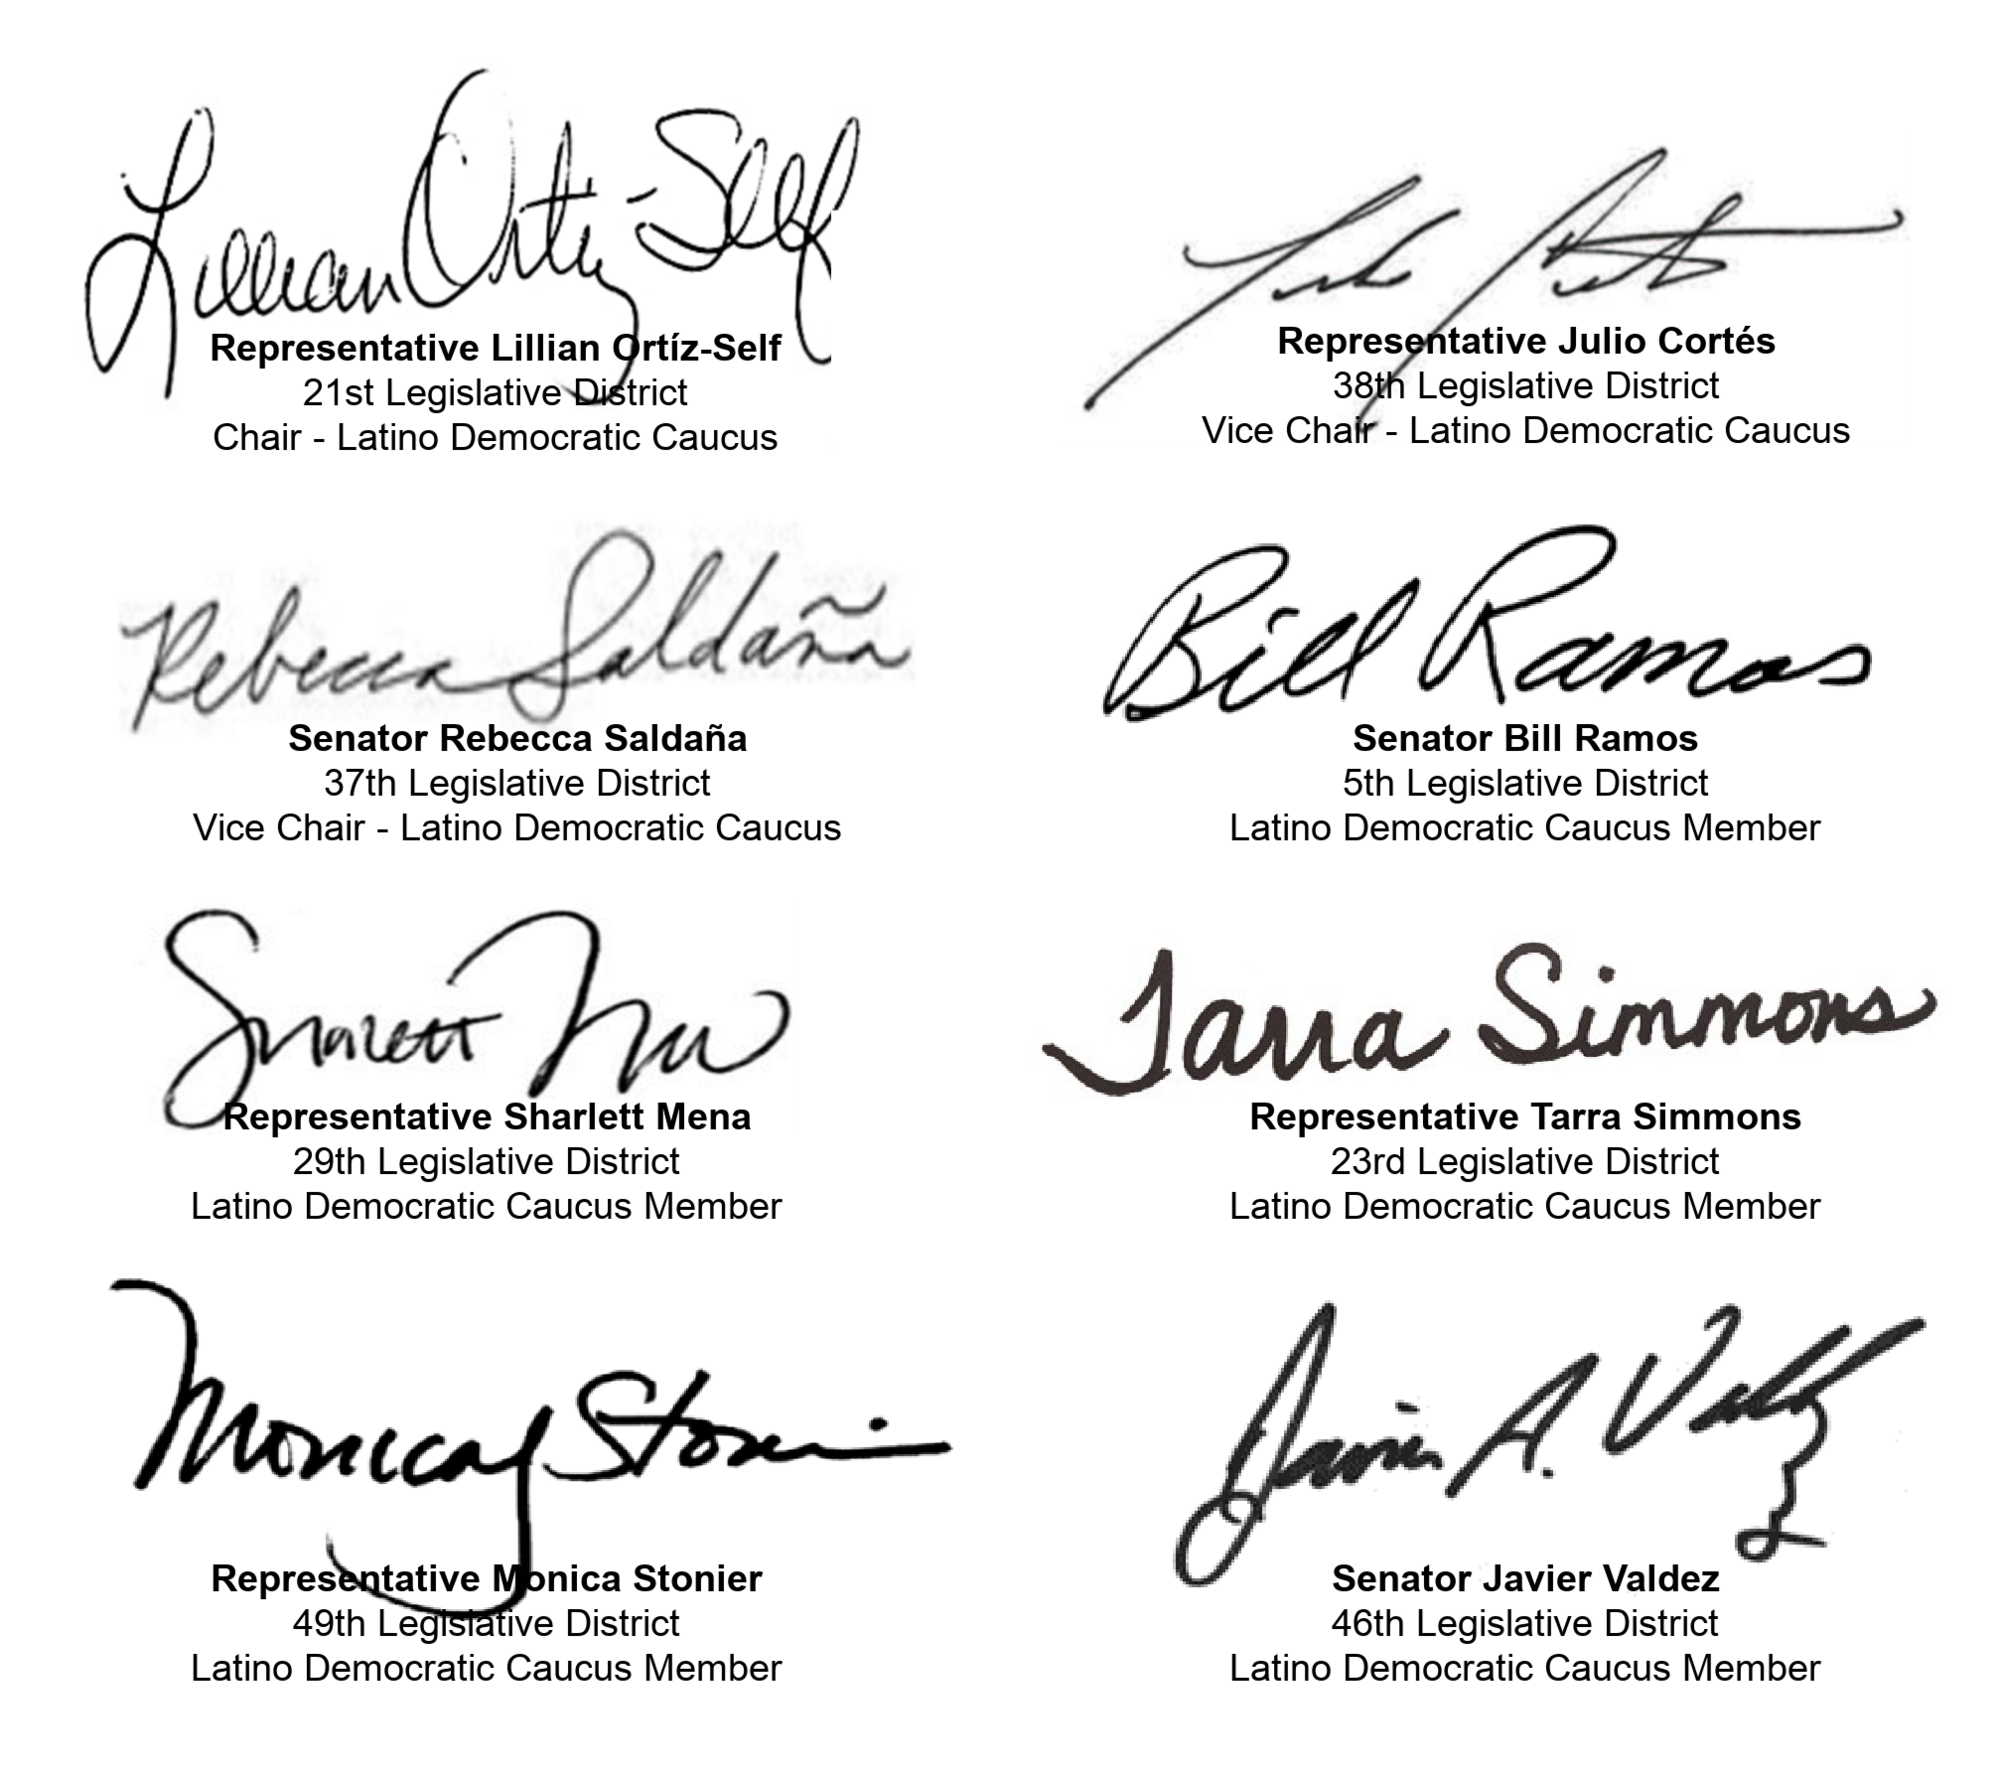 Lillian Ortiz-Self
Representative Lillian Ortíz-Self
21st Legislative District
Chair - Latino Democratic Caucus
Representative Julio Cortés
38th Legislative District
Vice Chair - Latino Democratic Caucus
Rebecca Saldaña
Senator Rebecca Saldaña
37th Legislative District
Vice Chair - Latino Democratic Caucus
Bill Ramos
Senator Bill Ramos
5th Legislative District
Latino Democratic Caucus Member
Sharlett
Representative Sharlett Mena
29th Legislative District
Latino Democratic Caucus Member
Tarra Simmons
Representative Tarra Simmons
23rd Legislative District
Latino Democratic Caucus Member
Monica Stonier
Representative Monica Stonier
49th Legislative District
Latino Democratic Caucus Member
Javier A. Valdez
Senator Javier Valdez
46th Legislative District
Latino Democratic Caucus Member